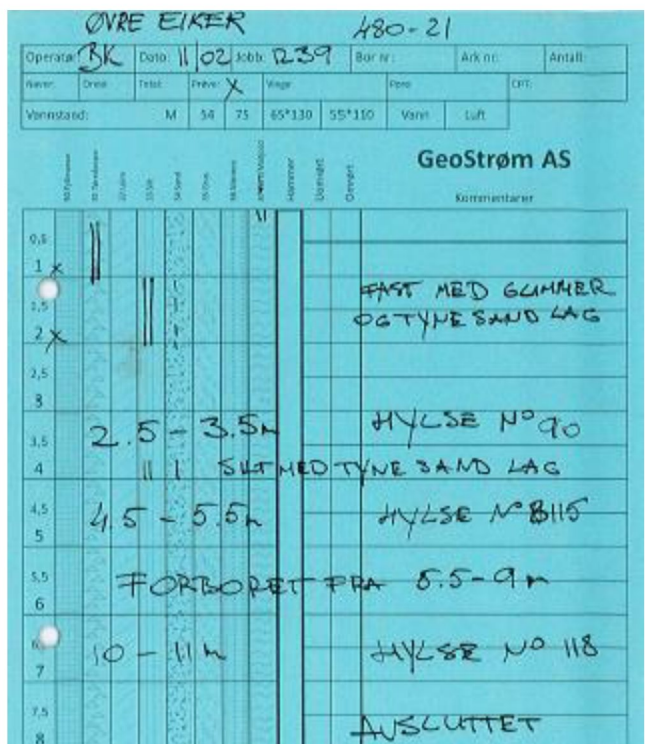 ØVRE EIKER 480-21
Operatør: BK Dato: 11 02 Jobb: 1239 Bor nr: Ark nr: Antall:
Naver: Dreie Total: Prøve: X Vinge Pore CPT:
Vannstand: M 54 75 65*130 55*110 Vann Luft
GeoStrøm AS
Hammer Uomrørt Omrørt Kommentarer
0,5
1 x
FAST MED GLIMMER
1,5
OG TYNE SAND LAG
2 x
2,5
3
2.5 - 3.5m HYLSE Nº 90
3,5
4 SILT MED TYNE SAND LAG
4,5
4.5 - 5.5m HYLSE Nº B115
5
5,5
FORBORET FRA 5.5-9m
6
10 - 11m HYLSE Nº 118
7
7,5
AVSLUTTET
8